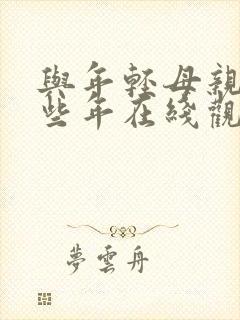 與年輕母親
些年在綫觀
夢雲舟